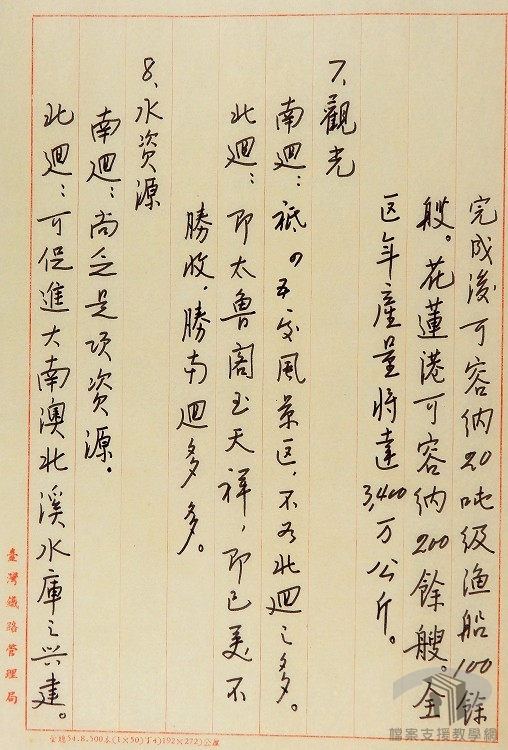 完成後可容納20吨级渔船100餘
艘。花蓮港可容納200餘艘。全
区年產量將達3,400万公斤。
7、觀光
南廻：祗4、5处風景区，不为北廻之多。
北廻：即太魯閣至天祥，即已美不
勝收，勝南廻多多。
8、水资源
南廻：尚乏是项资源。
北廻：可促進大南澳北溪水庫之兴建。
臺灣鐵路管理局
檔案支援教學網